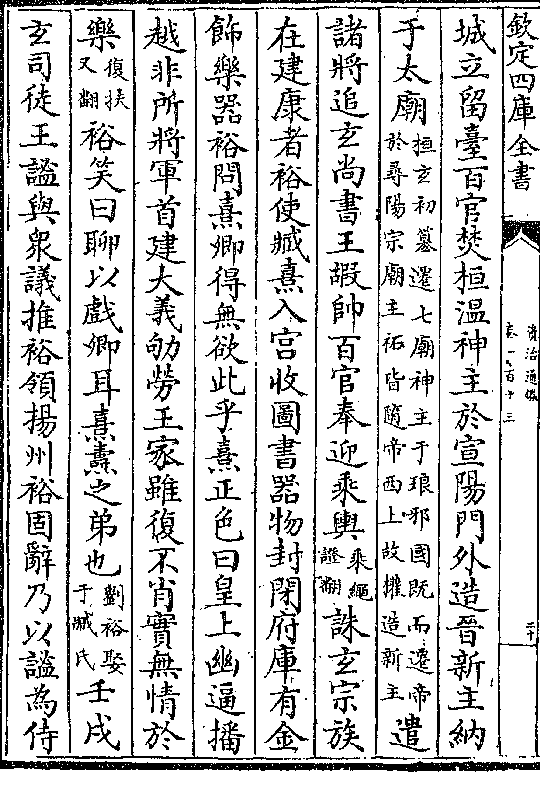 欽定四庫全書
資治通鑑
卷一百十三
二十
城立留臺百官焚桓溫神主於宣陽門外造晉新主納
于太廟桓玄初簒遷七廟神主于琅邪國既而遷帝於尋陽宗廟主祏皆隨帝西上故權造新主遣
諸將追玄尚書王嘏帥百官奉迎乘輿乘繩證翻誅玄宗族
在建康者裕使臧熹入宫收圖書器物封閉府庫有金
飾樂器裕問熹卿得無欲此乎熹正色曰皇上幽逼播
越非所將軍首建大義劬勞王家雖復不肖實無情於
樂復扶又翻裕笑曰聊以戲卿耳熹燾之弟也劉裕娶于臧氏壬戌
玄司徒王謐與衆議推裕領揚州裕固辭乃以謐為侍